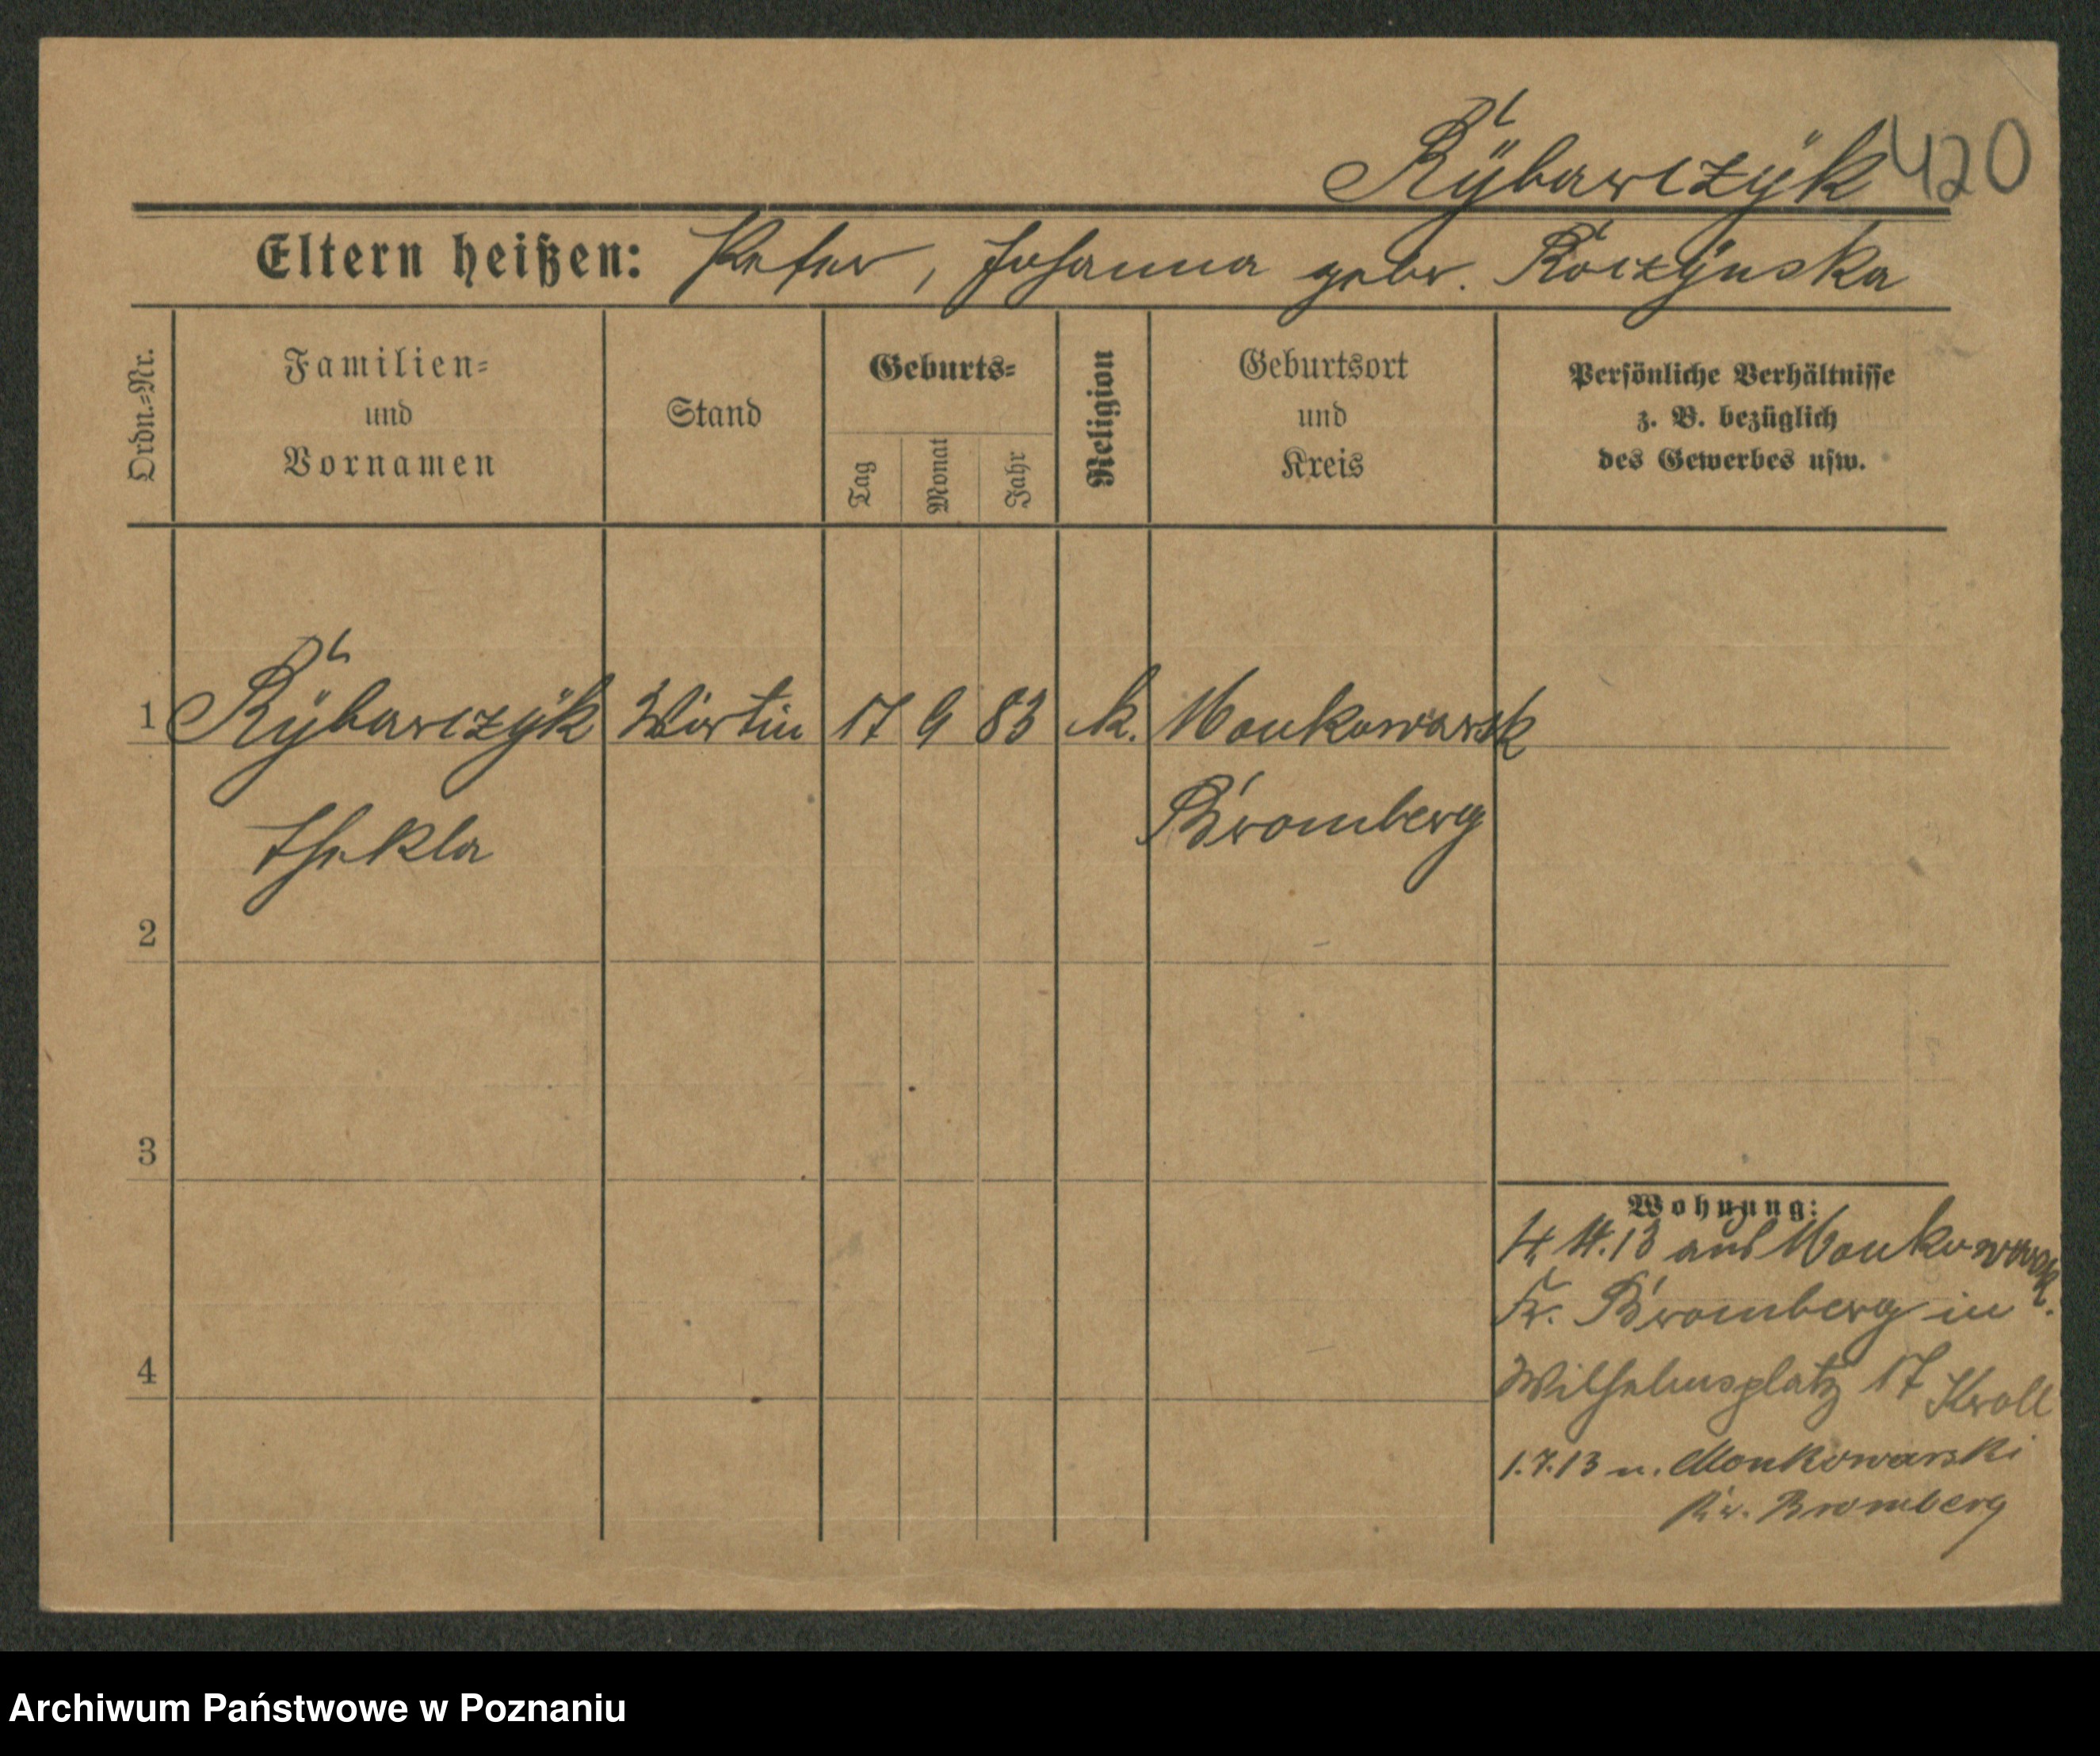 Rÿbarczÿk 420
Eltern heißen: Peter, Johanna gebr. Roczÿnska
Ordn.-Nr.
Familien-
und
Vornamen
Stand
Geburts-
Tag
Monat
Jahr
Religion
Geburtsort
und
Kreis
Persönliche Verhältnisse
z. B. bezüglich
des Gewerbes usw.
1 Rÿbarczÿk Wirtin 17 9 83 k. Monkowarsk
Thekla Bromberg
2
3
4
Wohnung:
4.13 aus Monkowarsk
Kr. Bromberg in
Wilhelmsplatz 17 Kroll
1.7.13 n. Monkowarski
Kr. Bromberg
Archiwum Państwowe w Poznaniu